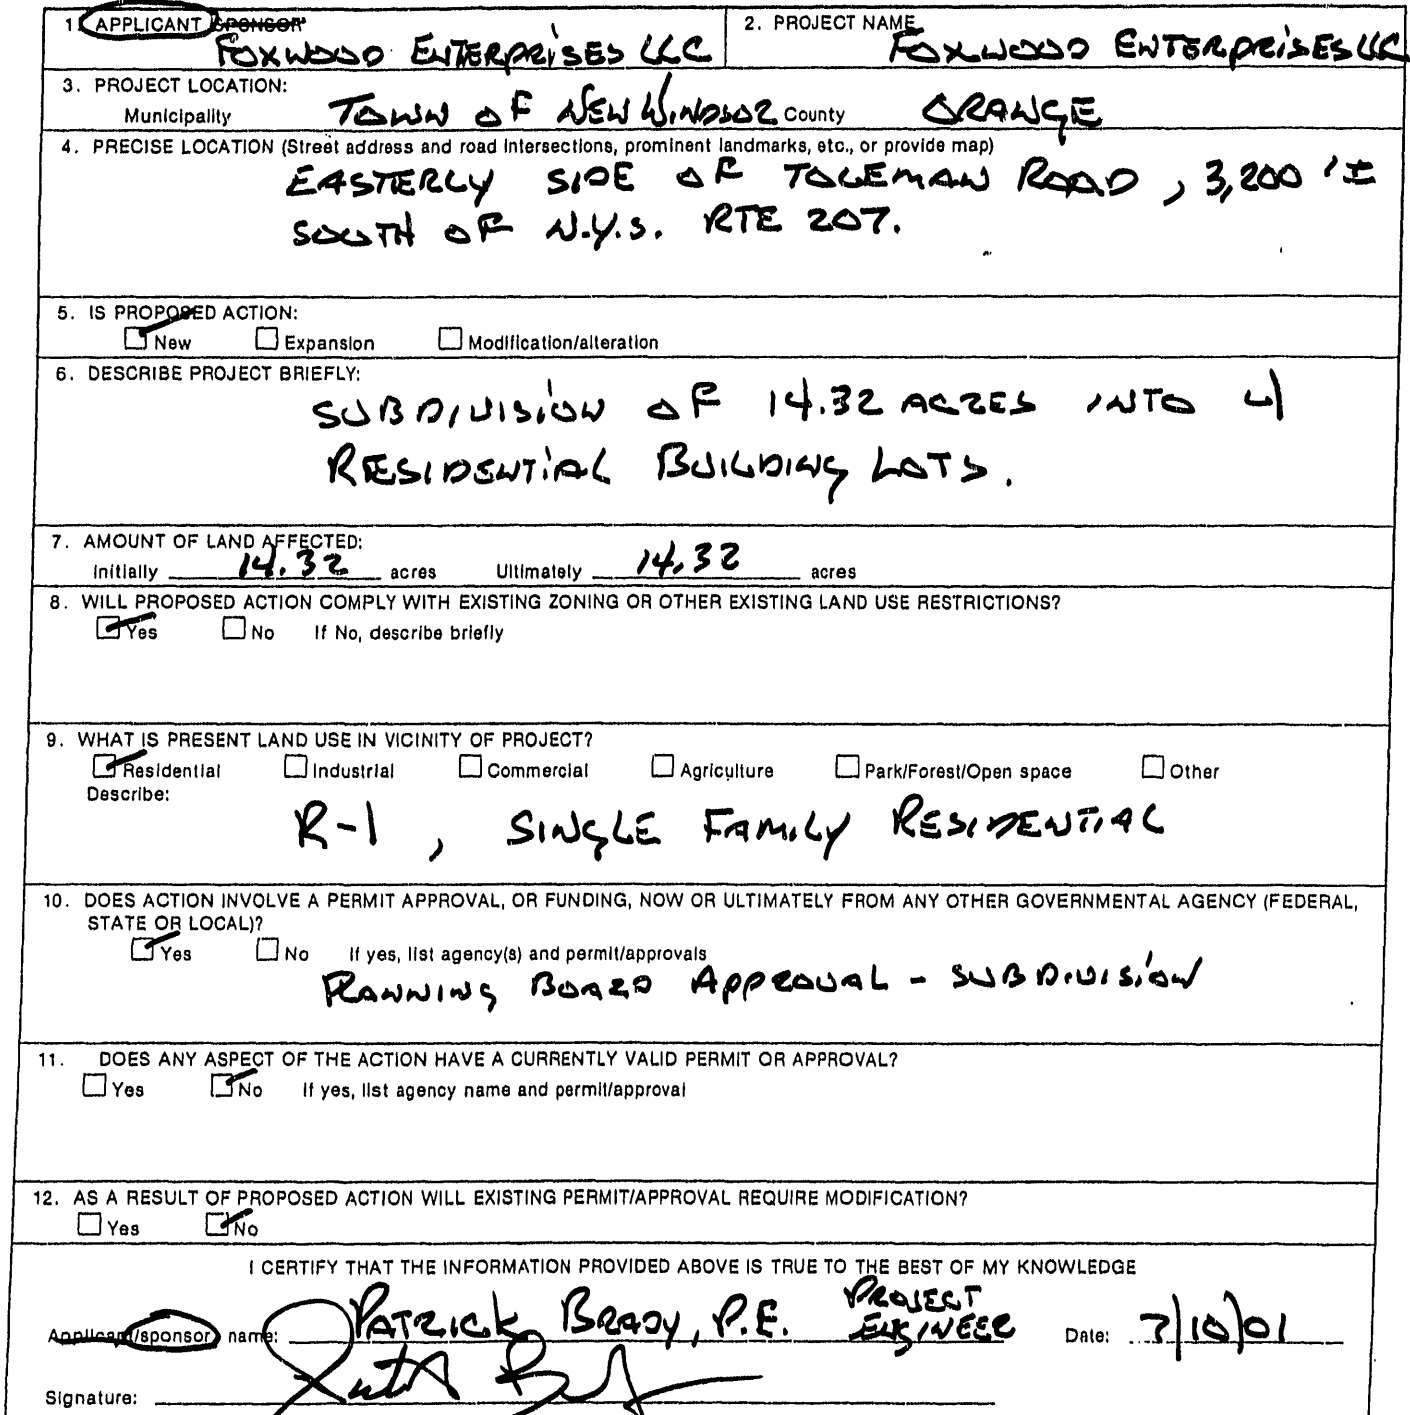 1. APPLICANT SPONSOR
FOXWOOD ENTERPRISES LLC
2. PROJECT NAME
FOXWOOD ENTERPRISES LLC
3. PROJECT LOCATION:
Municipality TOWN OF NEW WINDSOR County ORANGE
4. PRECISE LOCATION (Street address and road intersections, prominent landmarks, etc., or provide map)
EASTERLY SIDE OF TOLEMAN ROAD, 3,200 '±
SOUTH OF N.Y.S. RTE 207.
5. IS PROPOSED ACTION:
New Expansion Modification/alteration
6. DESCRIBE PROJECT BRIEFLY:
SUBDIVISION OF 14.32 ACRES INTO 4
RESIDENTIAL BUILDING LOTS.
7. AMOUNT OF LAND AFFECTED:
Initially 14.32 acres Ultimately 14.32 acres
8. WILL PROPOSED ACTION COMPLY WITH EXISTING ZONING OR OTHER EXISTING LAND USE RESTRICTIONS?
Yes No If No, describe briefly
9. WHAT IS PRESENT LAND USE IN VICINITY OF PROJECT?
Residential Industrial Commercial Agriculture Park/Forest/Open space Other
Describe:
R-1, SINGLE FAMILY RESIDENTIAL
10. DOES ACTION INVOLVE A PERMIT APPROVAL, OR FUNDING, NOW OR ULTIMATELY FROM ANY OTHER GOVERNMENTAL AGENCY (FEDERAL,
STATE OR LOCAL)?
Yes No If yes, list agency(s) and permit/approvals
PLANNING BOARD APPROVAL - SUBDIVISION
11. DOES ANY ASPECT OF THE ACTION HAVE A CURRENTLY VALID PERMIT OR APPROVAL?
Yes No If yes, list agency name and permit/approval
12. AS A RESULT OF PROPOSED ACTION WILL EXISTING PERMIT/APPROVAL REQUIRE MODIFICATION?
Yes No
I CERTIFY THAT THE INFORMATION PROVIDED ABOVE IS TRUE TO THE BEST OF MY KNOWLEDGE
Applicant/sponsor name: PATRICK BRADY, P.E. PROJECT ENGINEER Date: 7/10/01
Signature: